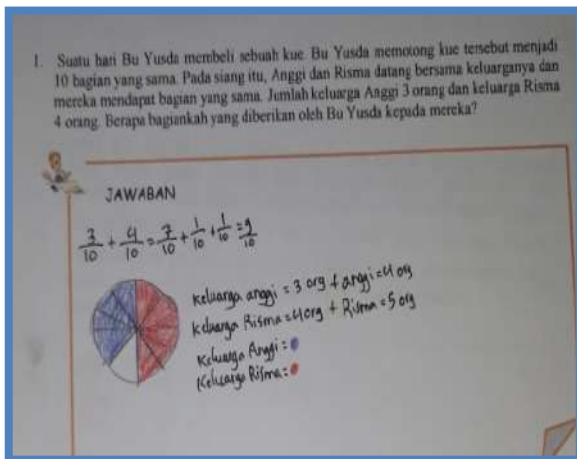 1. Suatu hari Bu Yusda membeli sebuah kue. Bu Yusda memotong kue tersebut menjadi
10 bagian yang sama. Pada siang itu, Anggi dan Risma datang bersama keluarganya dan
mereka mendapat bagian yang sama. Jumlah keluarga Anggi 3 orang dan keluarga Risma
4 orang. Berapa bagiankah yang diberikan oleh Bu Yusda kepada mereka?
JAWABAN
3/10 + 4/10 = 7/10 + 1/10 + 1/10 = 9/10
Keluarga anggi = 3 org + anggi = 4 org
Keluarga Risma = 4 org + Risma = 5 org
Keluarga Anggi =
Keluarga Risma =